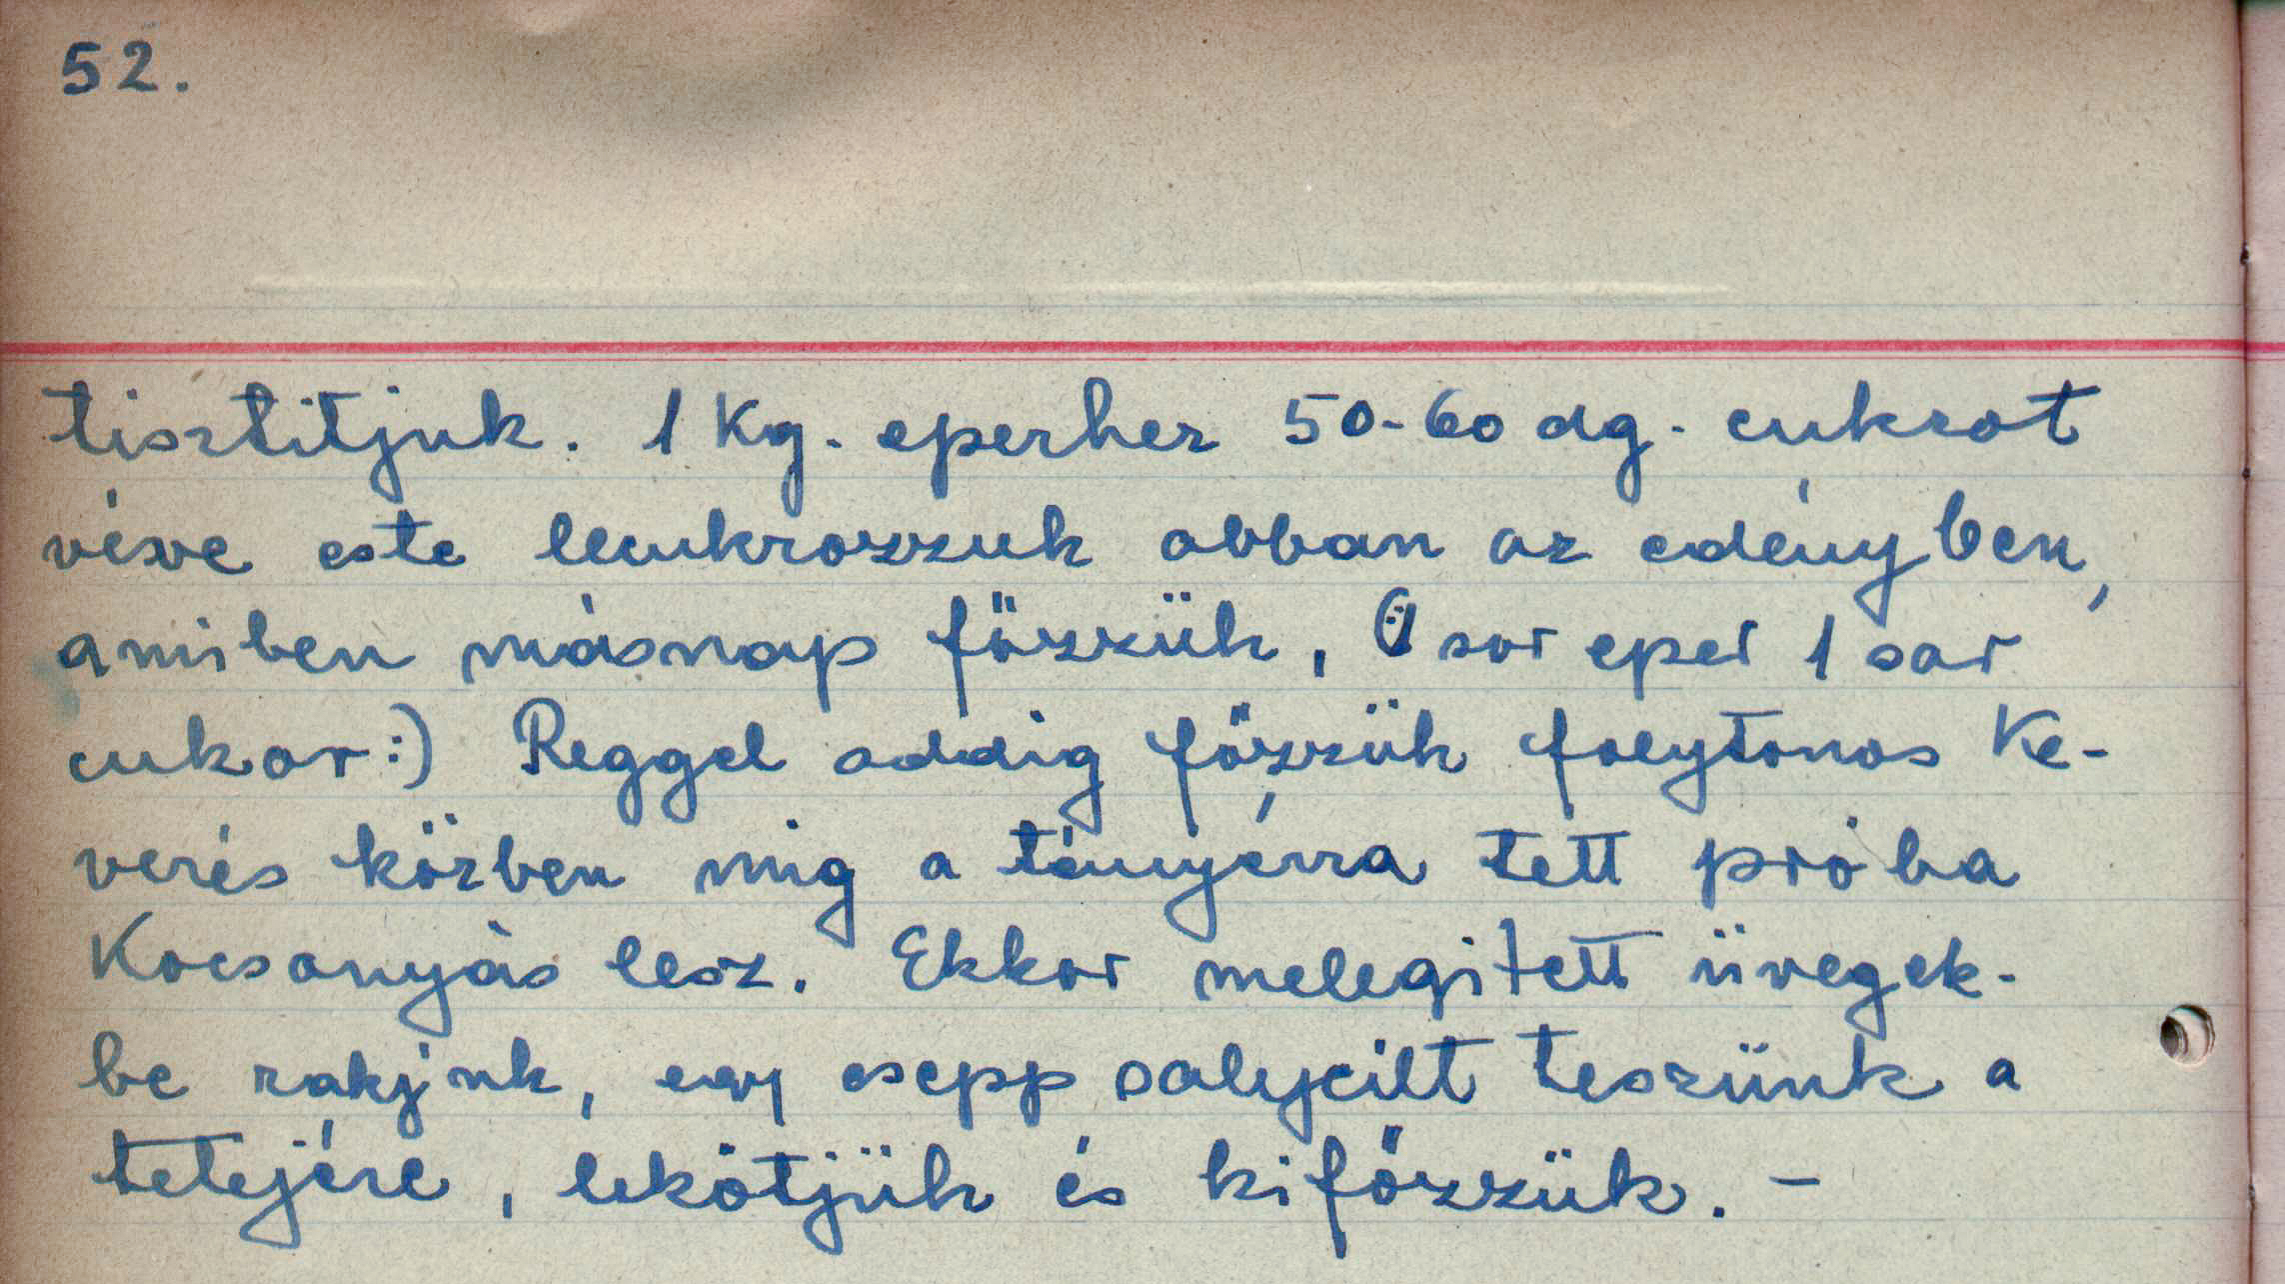 52.
tisztitjuk. 1 Kg. eperhez 50-60 dg. cukrot
véve este lecukrozzuk abban az edényben,
amiben másnap főzzük, (:1 sor eper 1 sor
cukor:) Reggel addig főzzük folytonos Ke-
verés közben mig a tányérra tett próba
Kocsonyás lesz. Ekkor melegitett üvegek-
be rakjuk, egy csepp salycilt teszünk a
tetejére, lekötjük és kifőzzük. -